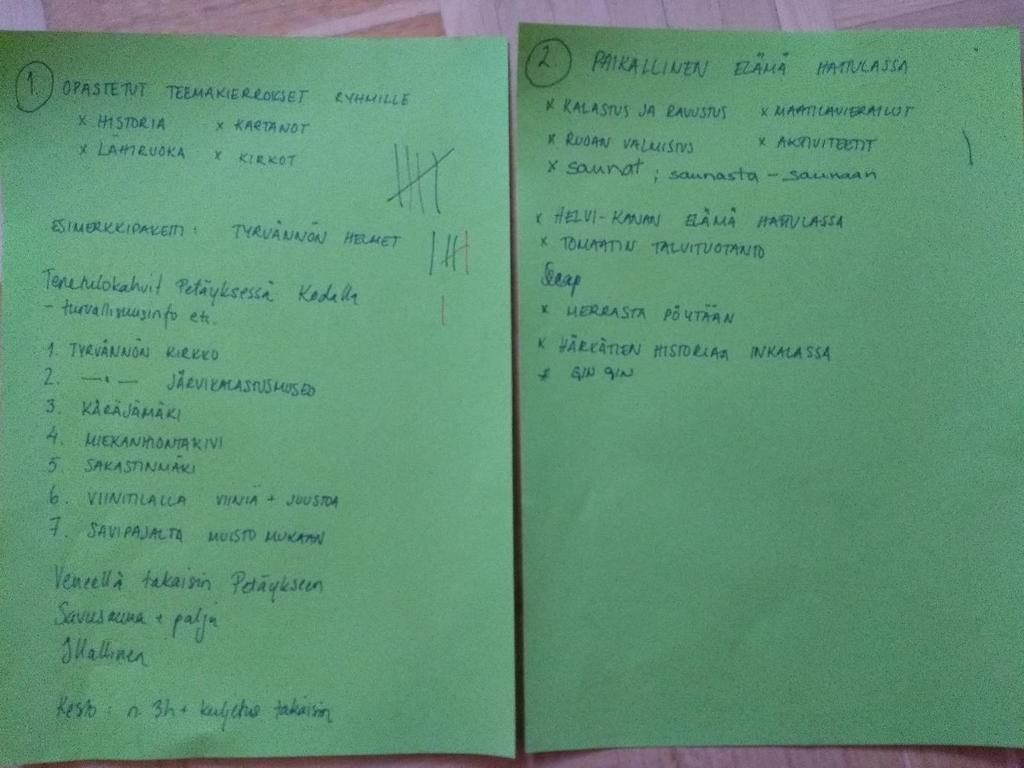 1. OPASTETUT TEEMAKIERROKSET RYHMILLE
x HISTORIA x KARTANOT
x LÄHIRUOKA x KIRKOT
ESIMERKKIPAKETTI: TYRVÄNNÖN HELMET
Tervetulokahvit Petäyksessä Kodalla
- turvallisuusinfo etc.
1. TYRVÄNNÖN KIRKKO
2. —"— JÄRVIKALASTUSMUSEO
3. KÄRÄJÄMÄKI
4. MIEKANHIONTAKIVI
5. SAKASTINMÄKI
6. VIINITILALLA VIINIÄ + JUUSTOA
7. SAVIPAJALTA MUISTO MUKAAN
Veneellä takaisin Petäykseen
Savusauna + palju
Illallinen
Kesto: n. 3h + kuljetus takaisin
2. PAIKALLINEN ELÄMÄ HATTULASSA
x KALASTUS JA RAVUSTUS x MAATILAVIERAILUT
x RUOAN VALMISTUS x AKTIVITEETIT
x saunat; saunasta - saunaan
x HELVI-KANAN ELÄMÄ HATTULASSA
x TOMAATIN TALVITUOTANTO
x MERRASTA PÖYTÄÄN
x HÄRKÄTIEN HISTORIAA INKALASSA
x GIN GIN